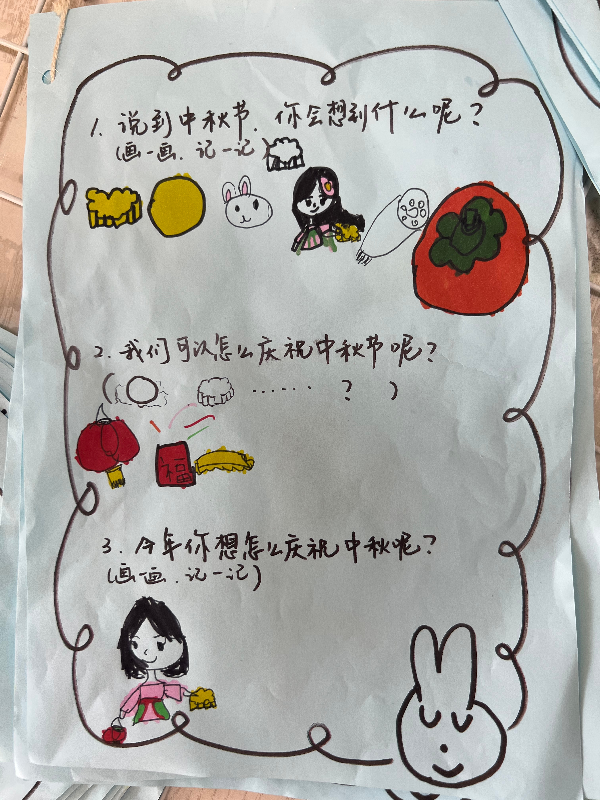 1. 说到中秋节, 你会想到什么呢?
(画一画. 记一记)
2. 我们可以怎么庆祝中秋节呢?
( ...... ? )
福
3. 今年你想怎么庆祝中秋呢?
(画一画. 记一记)